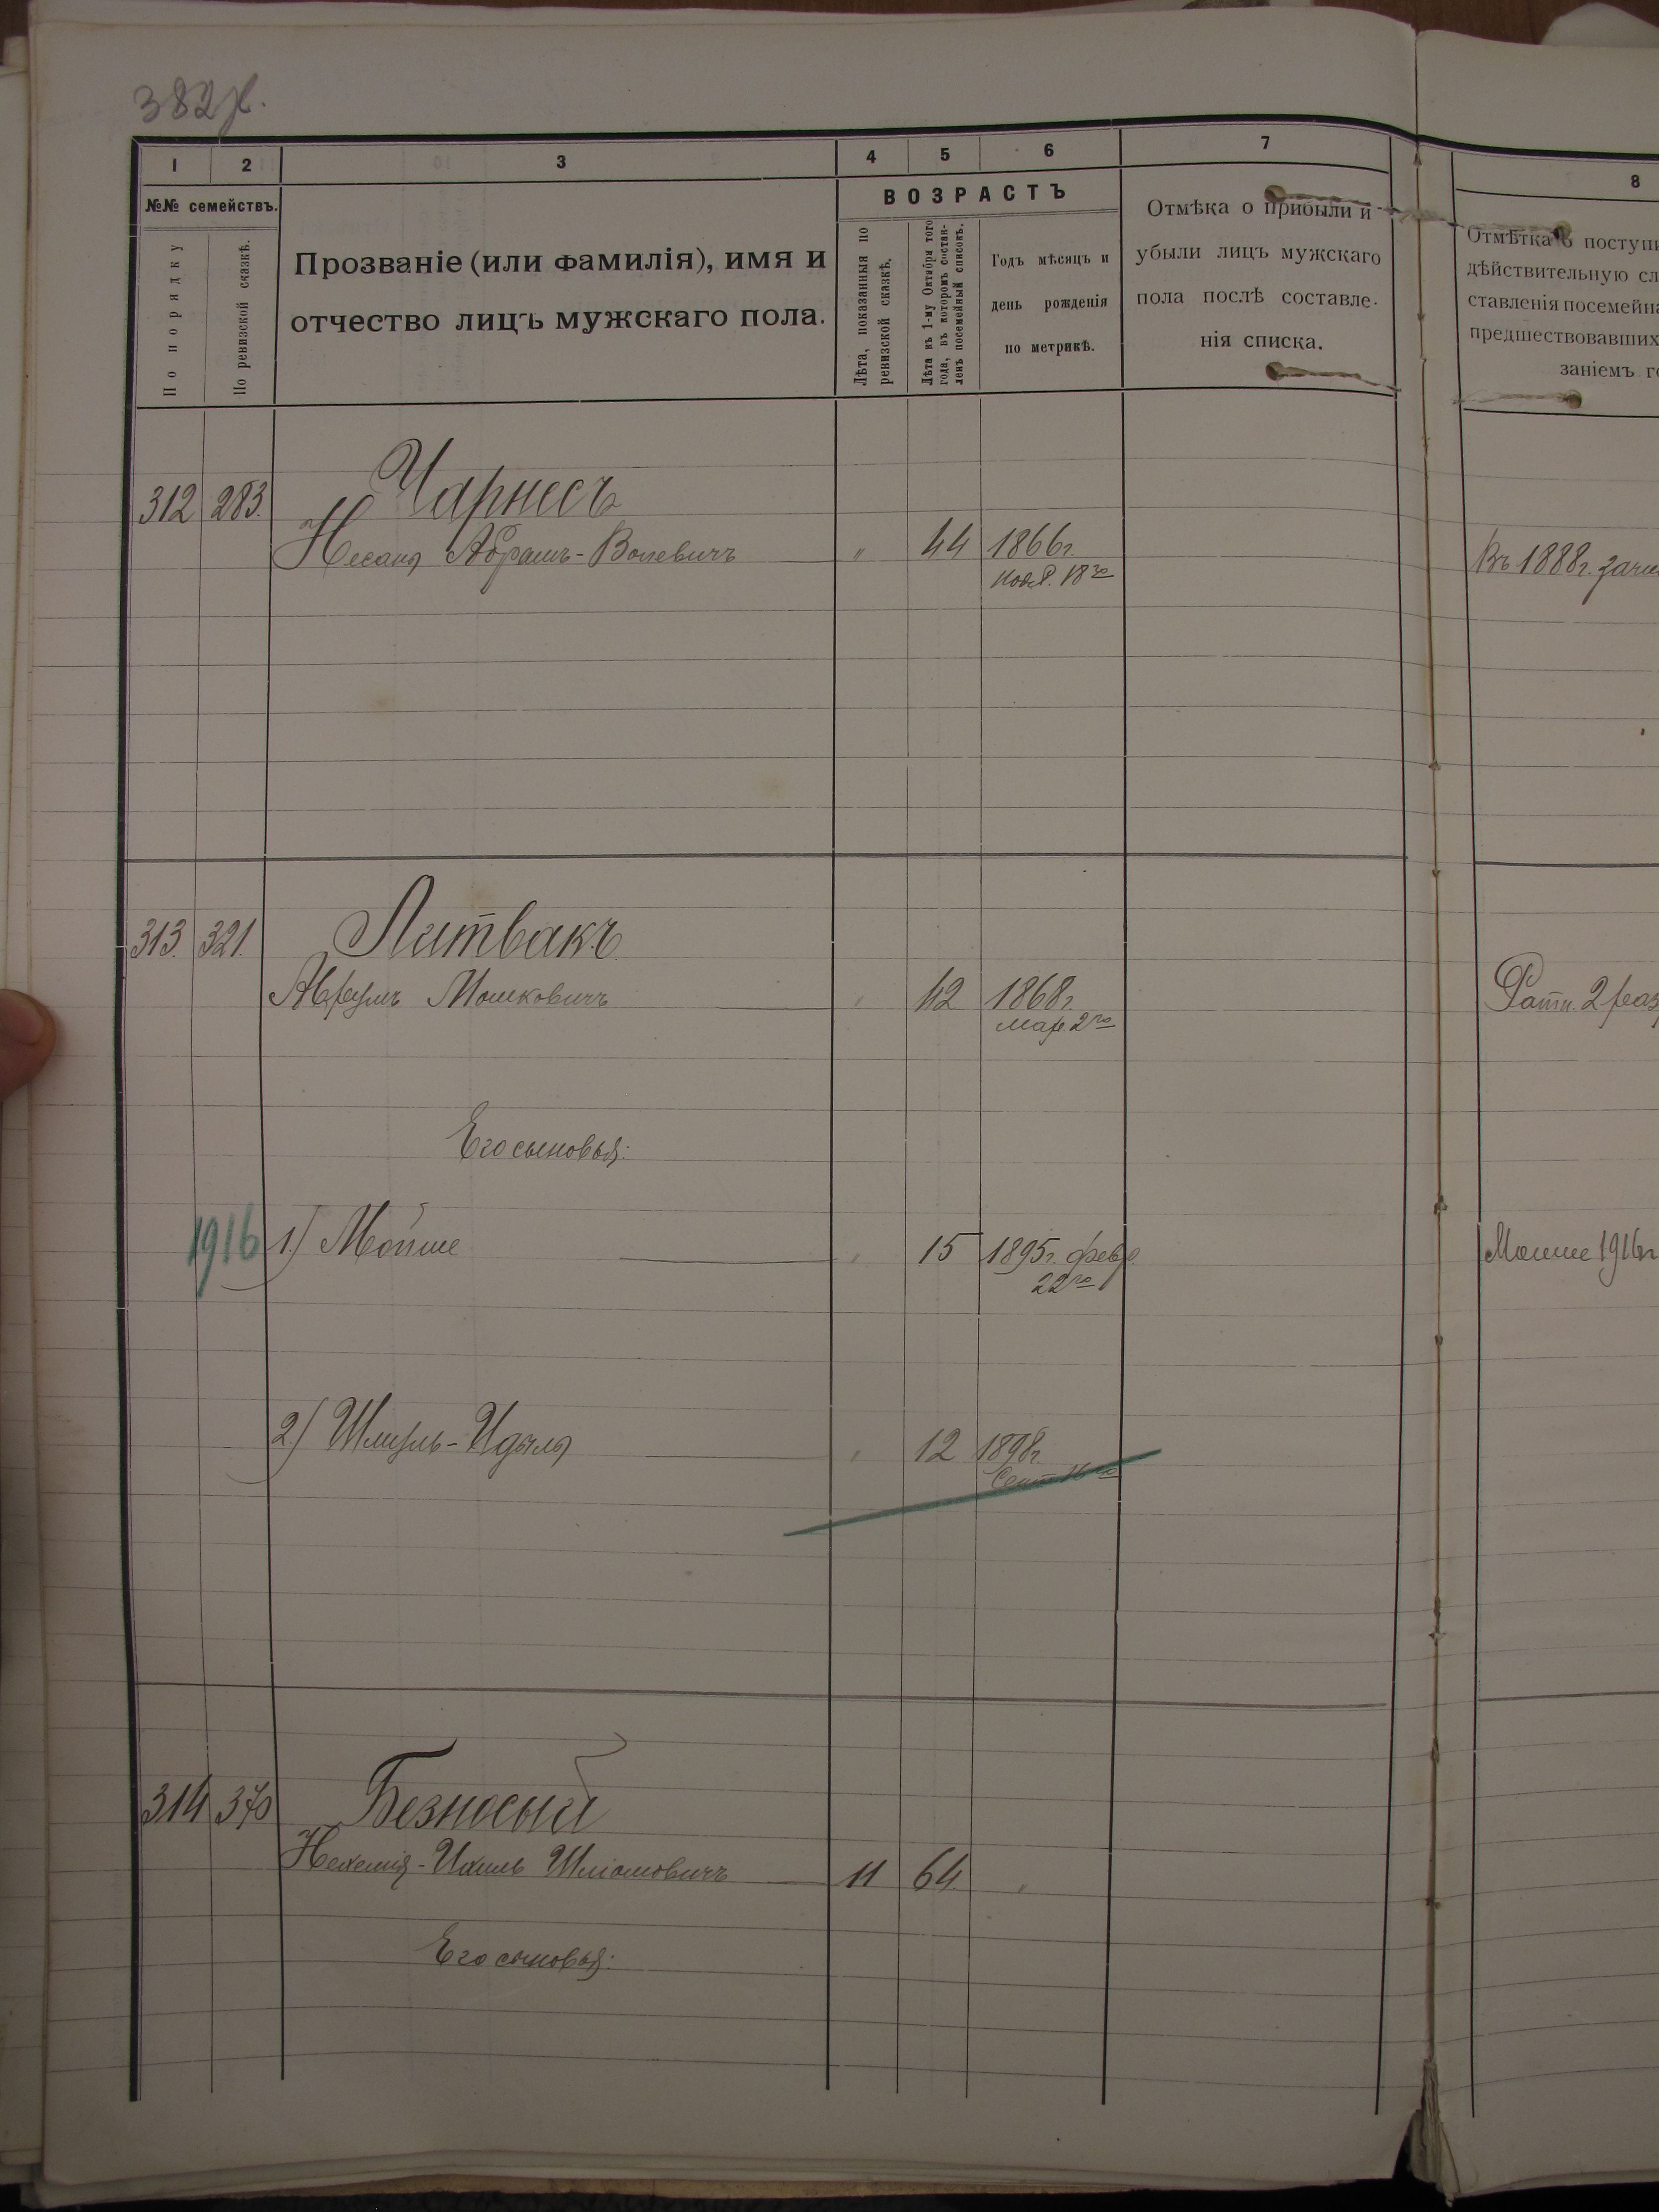 382
1 2 3 4 5 6 7 8
№№ семействъ.
По порядку
По ревизской сказкѣ.
Прозваніе (или фамилія), имя и
отчество лицъ мужскаго пола.
ВОЗРАСТЪ
Лѣта, показанныя по
ревизской сказкѣ.
Лѣта къ 1-му Октября того
года, въ которомъ состав-
ленъ посемейный списокъ.
Годъ мѣсяцъ и
день рожденія
по метрикѣ.
Отмѣка о прибыли и
убыли лицъ мужскаго
пола послѣ составле-
нія списка.
Отмѣтка о поступи
дѣйствительную сл
ставленія посемейна
предшествовавших
заніемъ го
312 283. Чарнесъ
Абрамъ-Волевичъ " 44 1866г.
18го
Въ 1888г. зачи
313. 321. Литвакъ
Аврумъ Мошковичъ " 42 1868г.
мар. 2го
Ратн. 2 раз
Его сыновья:
1916 1.) Мойше " 15 1895г. февр.
22го
Моише 1916г
2.) Шмуль-Идель " 12 1898г.
Сент 16го
314 370 Безносый
Нехемія-Ихиль Шліомовичъ 11 64. "
Его сыновья: